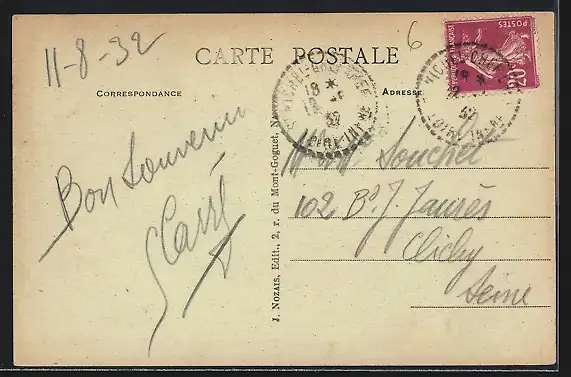 11-8-32
6
CARTE POSTALE
CORRESPONDANCE
ADRESSE
POSTES
20
18 *
12
32
LOIRE-INFRE
Bon Souvenir
Carré
J. Nozais, Edit., 2, r. du Mont-Goguet, N
Souchet
102, Bd J. Jaurès
Clichy
Seine